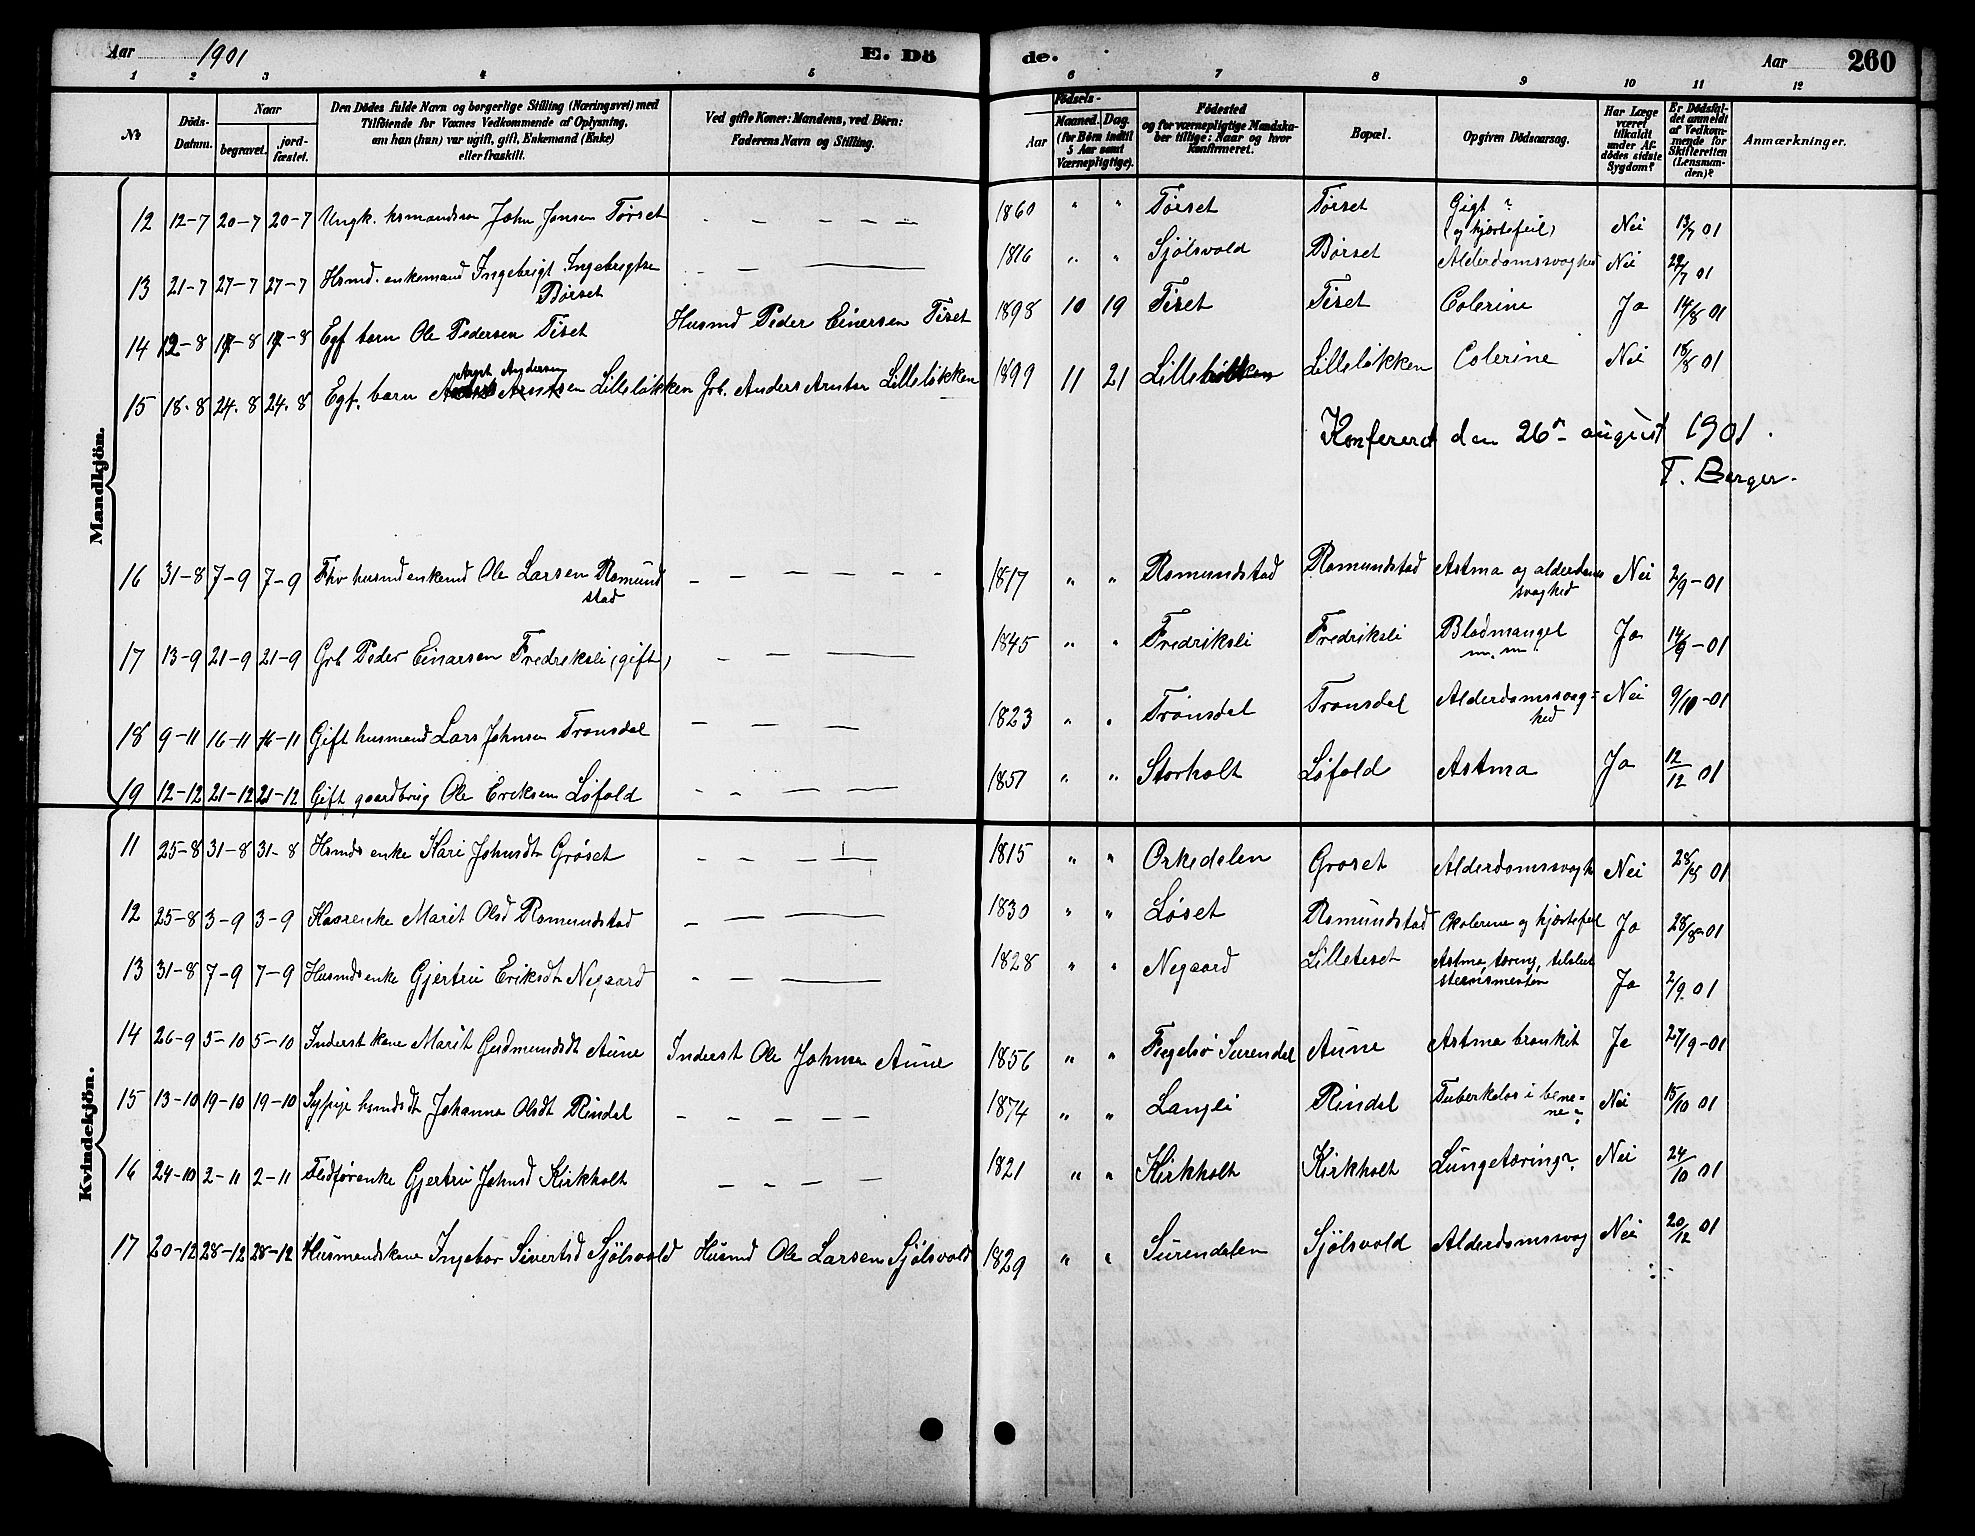 Aar 1901 E. Dö de. Aar 260
1 2 3 4 5 6 7 8 9 10 11 12
№ Döds-Datum. Naar begravet. jordfæstet. Den Dödes fulde Navn og borgerlige Stilling (Næringsvei) med Tilföiende for Voxnes Vedkommende af Oplysning, om han (hun) var ugift, gift, Enkemand (Enke) eller fraskilt. Ved gifte Koner: Mandens, ved Börn: Faderens Navn og Stilling. Födsels- Aar Maaned. Dag. (for Börn indtil 5 Aar samt Værnepligtige). Födested og for værnepligtige Mandskaber tillige: Naar og hvor Konfirmeret. Bopæl. Opgiven Dödsaarsag. Har Læge været tilkaldt under Afdödes sidste Sygdom? Er Dödsfaldet anmeldt af Vedkommende for Skifteretten (Lensmanden)? Anmærkninger.
Mandkjön.
12 12-7 20-7 20-7 Ungk. hsmandssøn John Jonsen Tørset — — — — 1860 " " Tørset Tørset Gigt ? (og hjertefeil) Nei 13/7 01
13 21-7 27-7 27-7 Hsmd. enkemand Ingebrigt Ingebrigtsen Børset — — — 1816 " " Sjølsvold Børset Alderdomssvaghed Nei 22/7 01
14 12-8 17-8 17-8 Egf barn Ole Pedersen Tiset Husmd Peder Einersen Tiset 1898 10 19 Tiset Tiset Colerine Ja 14/8 01
15 18-8 24-8 24-8 Egf. barn Arnt Andersen Lilleløkken Grb. Anders Arntsen Lilleløkken 1899 11 21 Lilleløkken Lilleløkken Colerine Nei 18/8 01
Konfereret den 26de august 1901.
T. Berger.
16 31-8 7-9 7-9 Fhv husmd enkemd Ole Larsen Romundstad — — — — — — 1817 " " Romundstad Romundstad Astma og alderdomssvaghed Nei 2/9-01
17 13-9 21-9 21-9 Grb Peder Einarsen Fredriksli (gift) — — — — 1845 " " Fredriksli Fredriksli Blodmangel m. m. Ja 14/9-01
18 9-11 16-11 16-11 Gift husmand Lars Johnsen Tronsdal — — — 1823 " " Tronsdal Tronsdal Alderdomssvaghed Nei 9/10-01
19 12-12 21-12 21-12 Gift gaardbrug Ole Eriksen Løfald — — — — 1851 " " Storholt Løfald Astma Ja 12/12 01
Kvindekjön.
11 25-8 31-8 31-8 Hsmds enke Kari Johnsdt Grøset — — — — 1815 " " Orkedalen Grøset Alderdomssvagh Nei 28/8 01
12 25-8 3-9 3-9 Kaarenke Marit Olsd Romundstad — — — 1830 " " Løset Romundstad Cholerine og hjertefeil Ja 28/8-01
13 31-8 7-9 7-9 Husmdsenke Gjertru Eriksdt Negaard — — — 1828 " " Negaard Lilleteset Astma, tæring, tilsluet Ja 2/9 01
14 26-9 5-10 5-10 Inderst kone Marit Gudmundsdt Aune Inderst Ole Johnsen Aune 1856 " " Surendal Aune Astma bronkit Ja 27/9-01
15 13-10 19-10 19-10 Sypige hsmdsdt Johanna Olsdt Rindal — — — — 1874 " " Langli Rindal Tuberkelos i benene ? Nei 15/10 01
16 24-10 2-11 2-11 Fledførenke Gjertru Johnsd Kirkholt — — — — 1821 " " Kirkholt Kirkholt Lungetæring ?. Nei 24/10 01
17 20-12 28-12 28-12 Husmandskone Ingebor Sivertsd Sjølsvold Husmd Ole Larsen Sjølsvold 1829 " " Surendalen Sjølsvold Alderdomssvag Nei 20/12 01